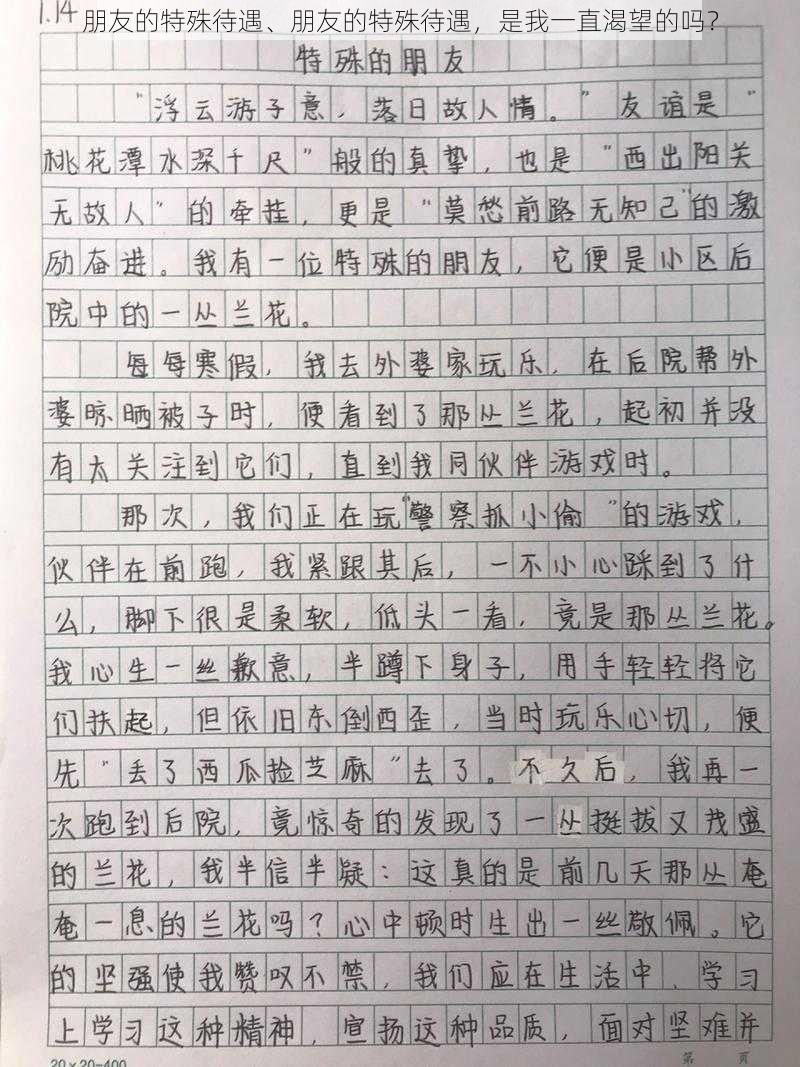 1.14
朋友的特殊待遇、朋友的特殊待遇，是我一直渴望的吗？
特殊的朋友
“浮云游子意，落日故人情。”友谊是“
桃花潭水深千尺”般的真挚，也是“西出阳关
无故人”的牵挂，更是“莫愁前路无知己”的激
励奋进。我有一位特殊的朋友，它便是小区后
院中的一丛兰花。
每每寒假，我去外婆家玩乐，在后院帮外
婆晾晒被子时，便看到了那丛兰花，起初并没
有太关注到它们，直到我同伙伴游戏时。
那次，我们正在玩“警察抓小偷”的游戏，
伙伴在前跑，我紧跟其后，一不小心踩到了什
么，脚下很是柔软，低头一看，竟是那丛兰花。
我心生一丝歉意，半蹲下身子，用手轻轻将它
们扶起，但依旧东倒西歪，当时玩乐心切，便
先“丢了西瓜捡芝麻”去了。不久后，我再一
次跑到后院，竟惊奇的发现了一丛挺拔又茂盛
的兰花，我半信半疑：这真的是前几天那丛奄
奄一息的兰花吗？心中顿时生出一丝敬佩。它
的坚强使我赞叹不禁，我们应在生活中、学习
上学习这种精神，宣扬这种品质，面对坚难并
20×20=400
第 页